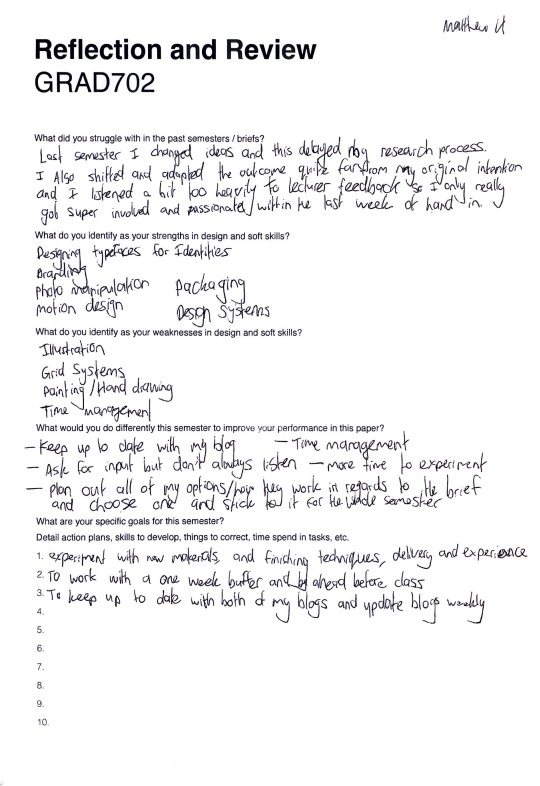 Matthew U
Reflection and Review
GRAD702
What did you struggle with in the past semesters / briefs?
Last semester I changed ideas and this delayed my research process.
I Also shifted and adapted the outcome quite far from my original intention
and I listened a bit too heavily to lecturer feedback so I only really
got super involved and passionate within the last week of hand in.
What do you identify as your strengths in design and soft skills?
Designing typefaces for Identities
Branding
Photo manipulation Packaging
motion design Design Systems
What do you identify as your weaknesses in design and soft skills?
Illustration
Grid Systems
Painting / Hand drawing
Time management
What would you do differently this semester to improve your performance in this paper?
- Keep up to date with my blog - Time management
- Ask for input but don't always listen - more time to experiment
- Plan out all of my options/how they work in regards to the brief
and choose one and stick to it for the whole semester
What are your specific goals for this semester?
Detail action plans, skills to develop, things to correct, time spend in tasks, etc.
1. experiment with new materials, and finishing techniques, delivery and experience
2. To work with a one week buffer and ahead before class
3. To keep up to date with both of my blogs and update blogs weekly
4.
5.
6.
7.
8.
9.
10.